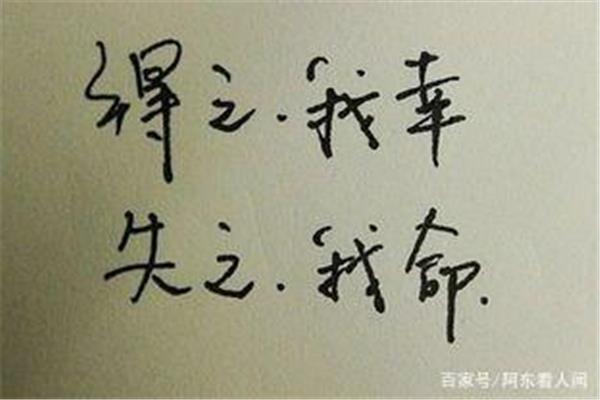 得之.我幸
失之.我命.
百家号/阿东看人间